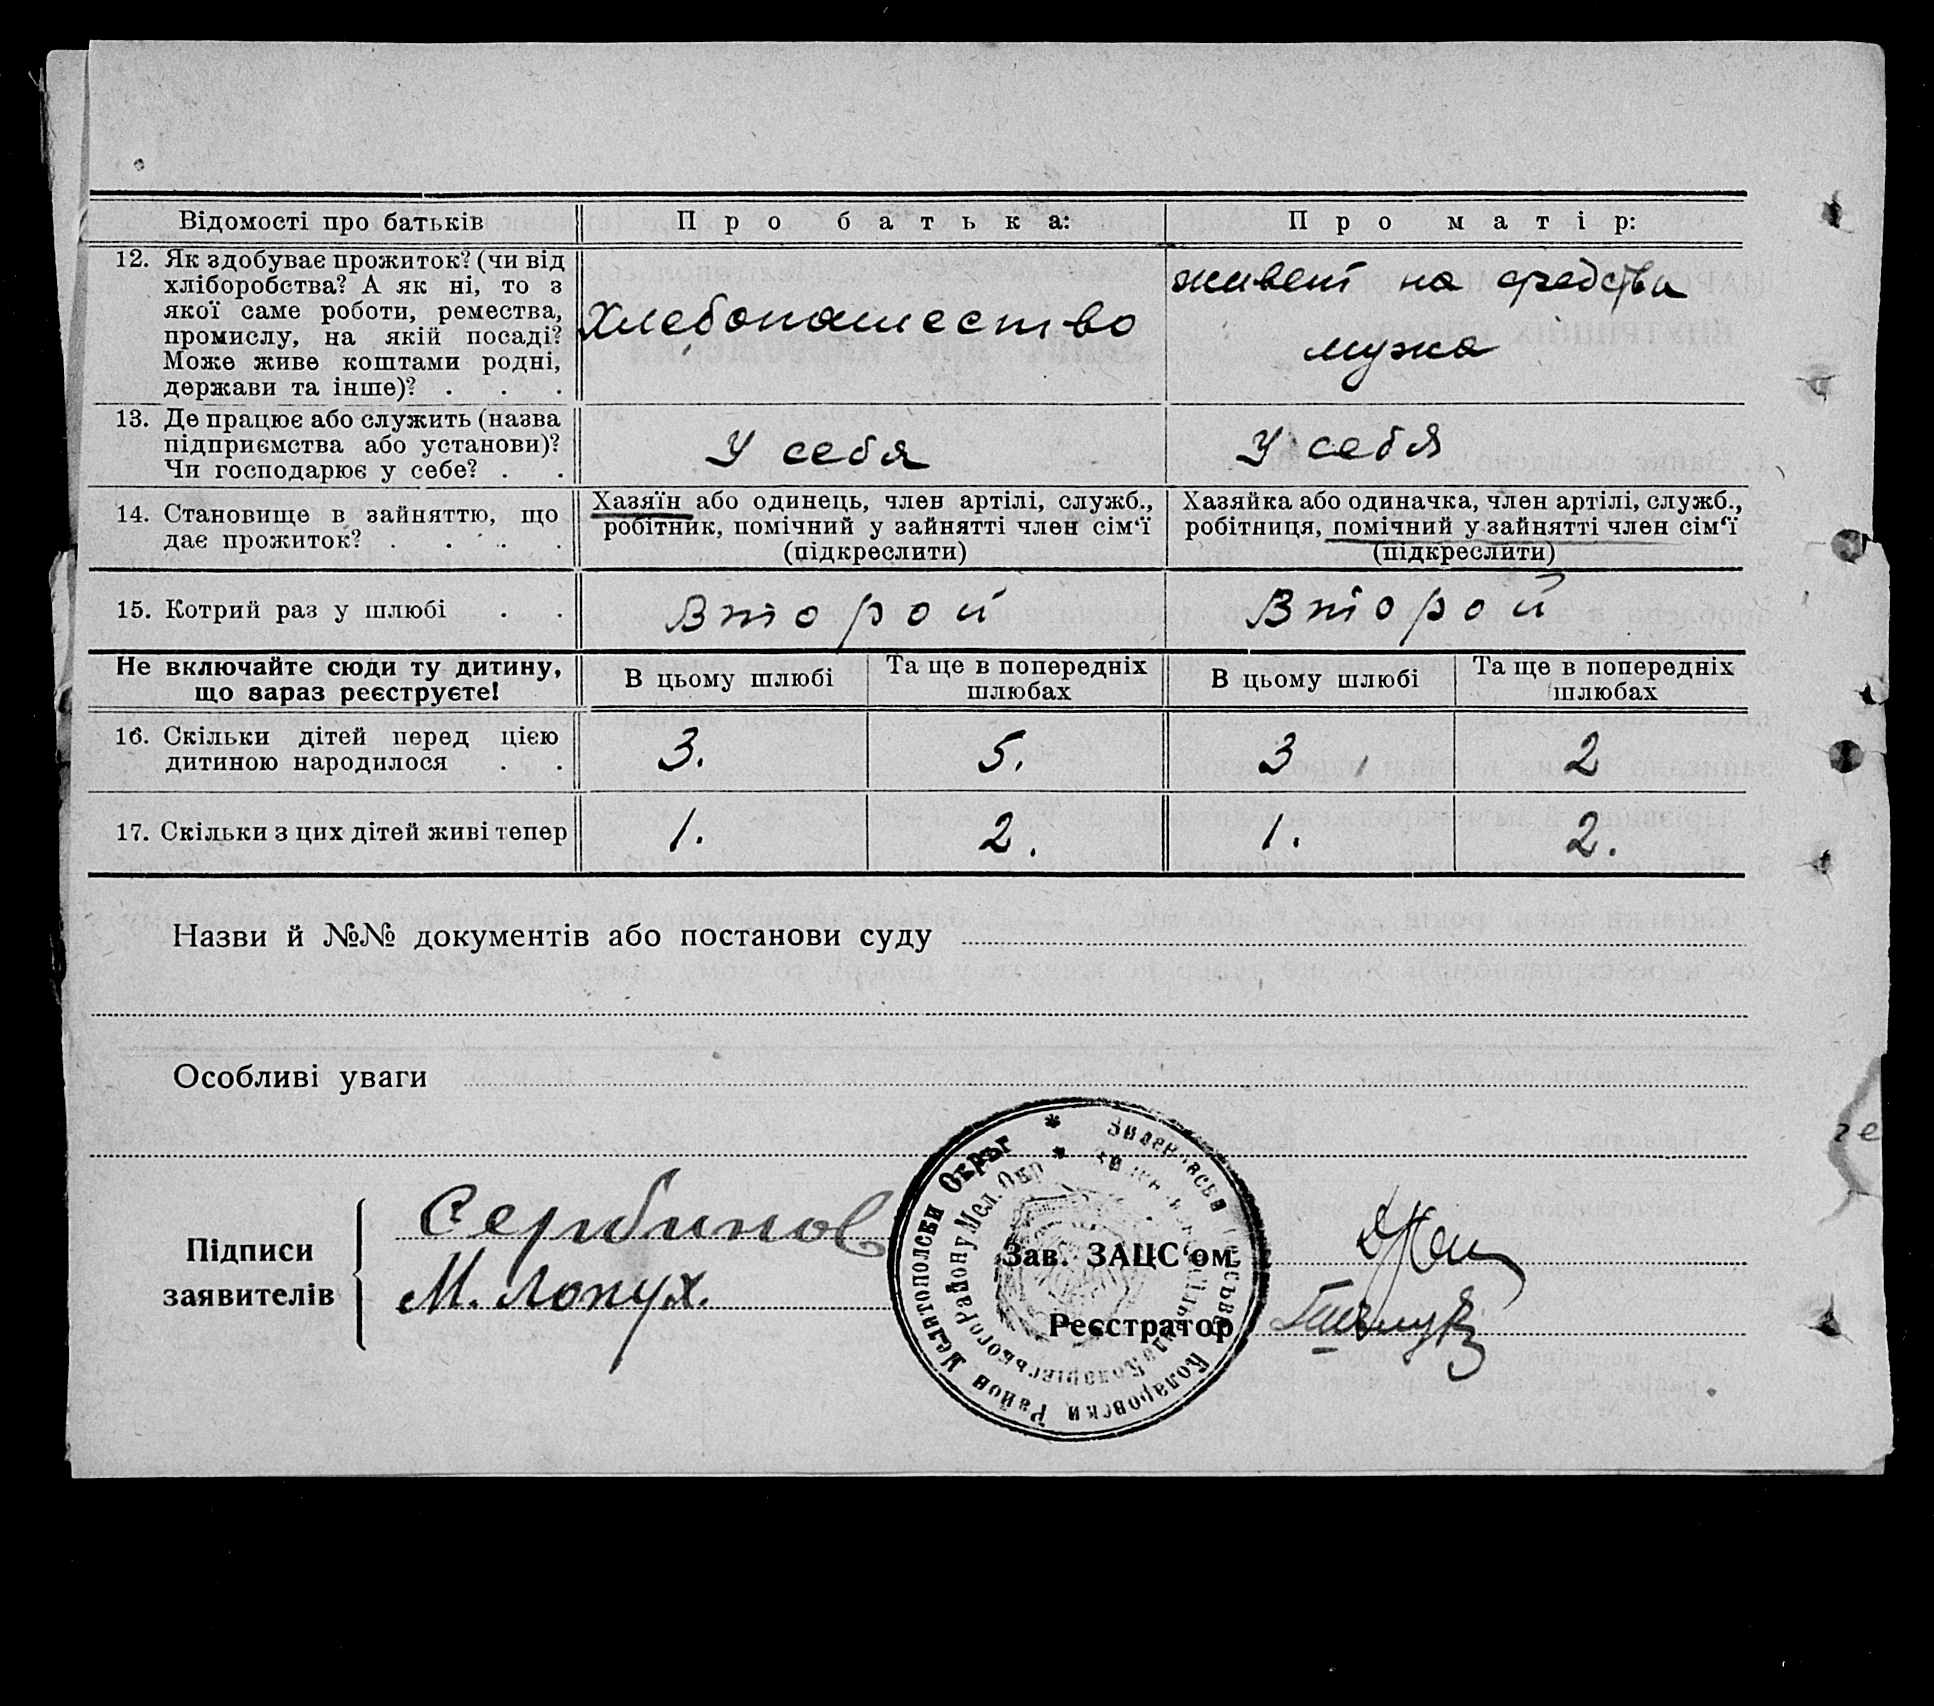 Відомості про батьків
Про батька:
Про матір:
12. Як здобуває прожиток? (чи від
хліборобства? А як ні, то з
якої саме роботи, ремества,
промислу, на якій посаді?
Може живе коштами родні,
держави та інше)? . . .
Хлебопашество
живет на средства
мужа
13. Де працює або служить (назва
підприємства або установи)?
Чи господарює у себе? . .
У себя
У себя
14. Становище в зайняттю, що
дає прожиток? . . . .
Хазяїн або одинець, член артілі, служб.,
робітник, помічний у зайнятті член сім'ї
(підкреслити)
Хазяйка або одиначка, член артілі, служб.,
робітниця, помічний у зайнятті член сім'ї
(підкреслити)
15. Котрий раз у шлюбі . .
Второй
Второй
Не включайте сюди ту дитину,
що зараз реєструєте!
В цьому шлюбі
Та ще в попередніх
шлюбах
В цьому шлюбі
Та ще в попередніх
шлюбах
16. Скільки дітей перед цією
дитиною народилося . .
3.
5.
3
2
17. Скільки з цих дітей живі тепер
1.
2.
1.
2.
Назви й №№ документів або постанови суду
Особливі уваги
Підписи
заявителів
Сербинов
М. Лопух.
Мелитополски Окръг
Коларовски Район
Зав. ЗАЦС'ом
Реєстратор